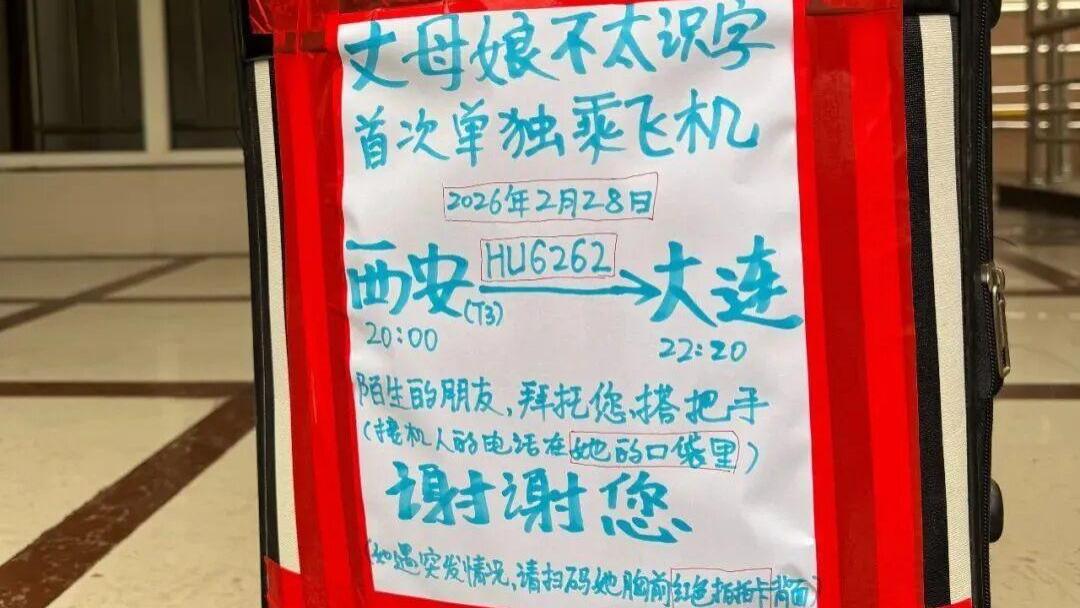 丈母娘不太识字
首次单独乘飞机
2026年2月28日
西安 HU6262 大连
(T3)
20:00 22:20
陌生的朋友,拜托您,搭把手
(接机人的电话在她的口袋里)
谢谢您
(如遇突发情况,请扫码她胸前红色拍拍卡背面)